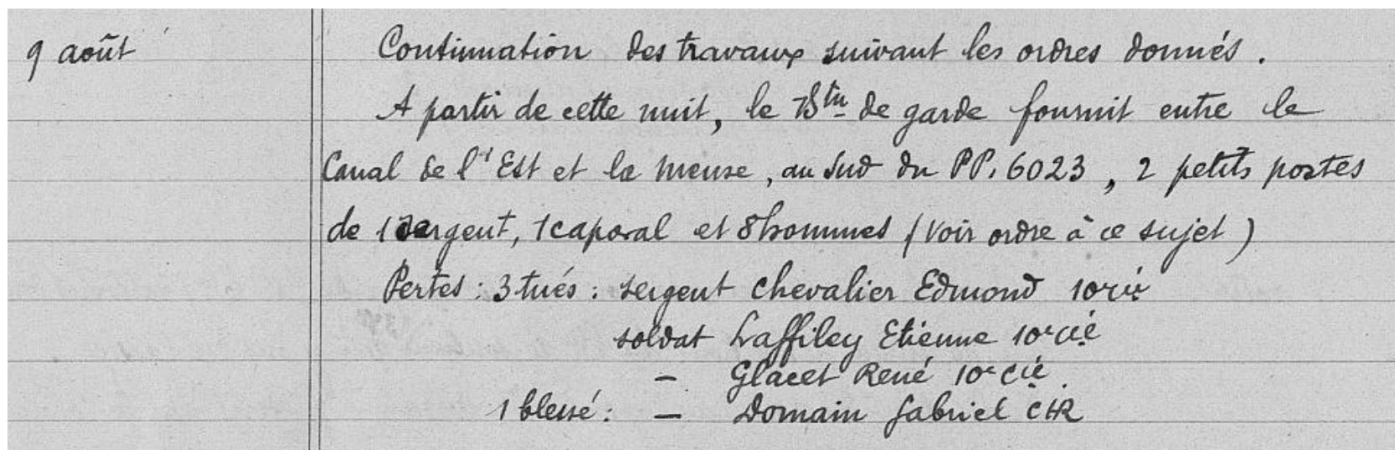 9 août Continuation des travaux suivant les ordres donnés.
A partir de cette nuit, le Btn de garde fournit entre le
Canal de l'Est et la Meuse, au Sud du PP. 6023, 2 petits postes
de 1 sergent, 1 caporal et 8 hommes (Voir ordre à ce sujet)
Pertes : 3 tués : sergent Chevalier Edmond 10e Cie
soldat Laffiley Etienne 10e Cie
— Glacet René 10e Cie
1 blessé : — Domain Gabriel CHR